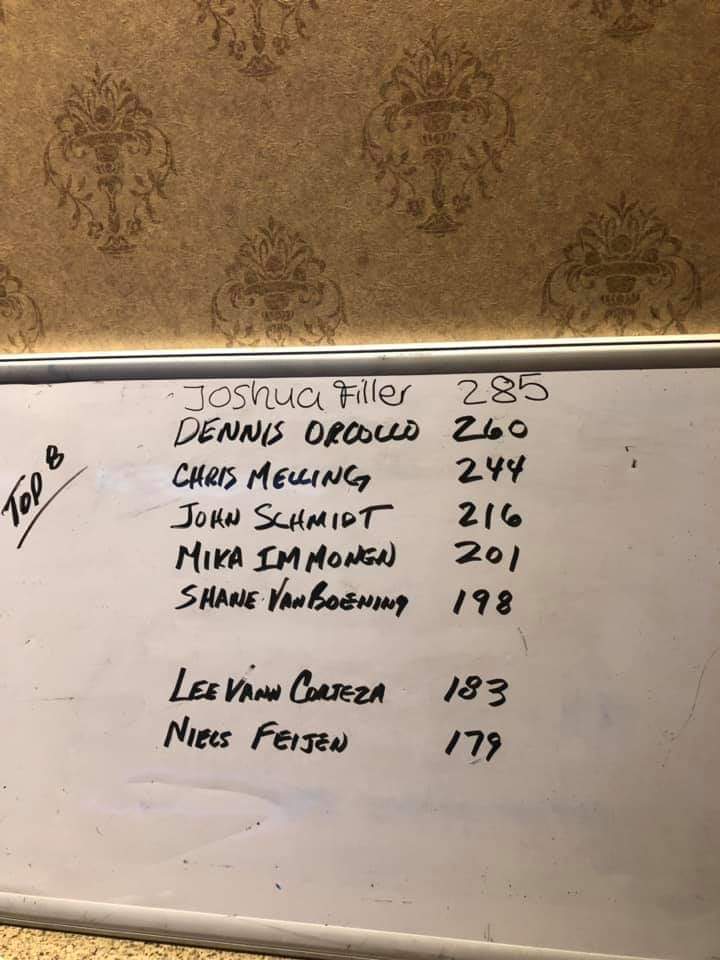 Joshua Filler 285
DENNIS ORCOLLO 260
TOP 8
CHRIS MELLING 244
JOHN SCHMIDT 216
MIKA IMMONEN 201
SHANE VANBOENING 198
LEE VANN CORTEZA 183
NIELS FEIJEN 179